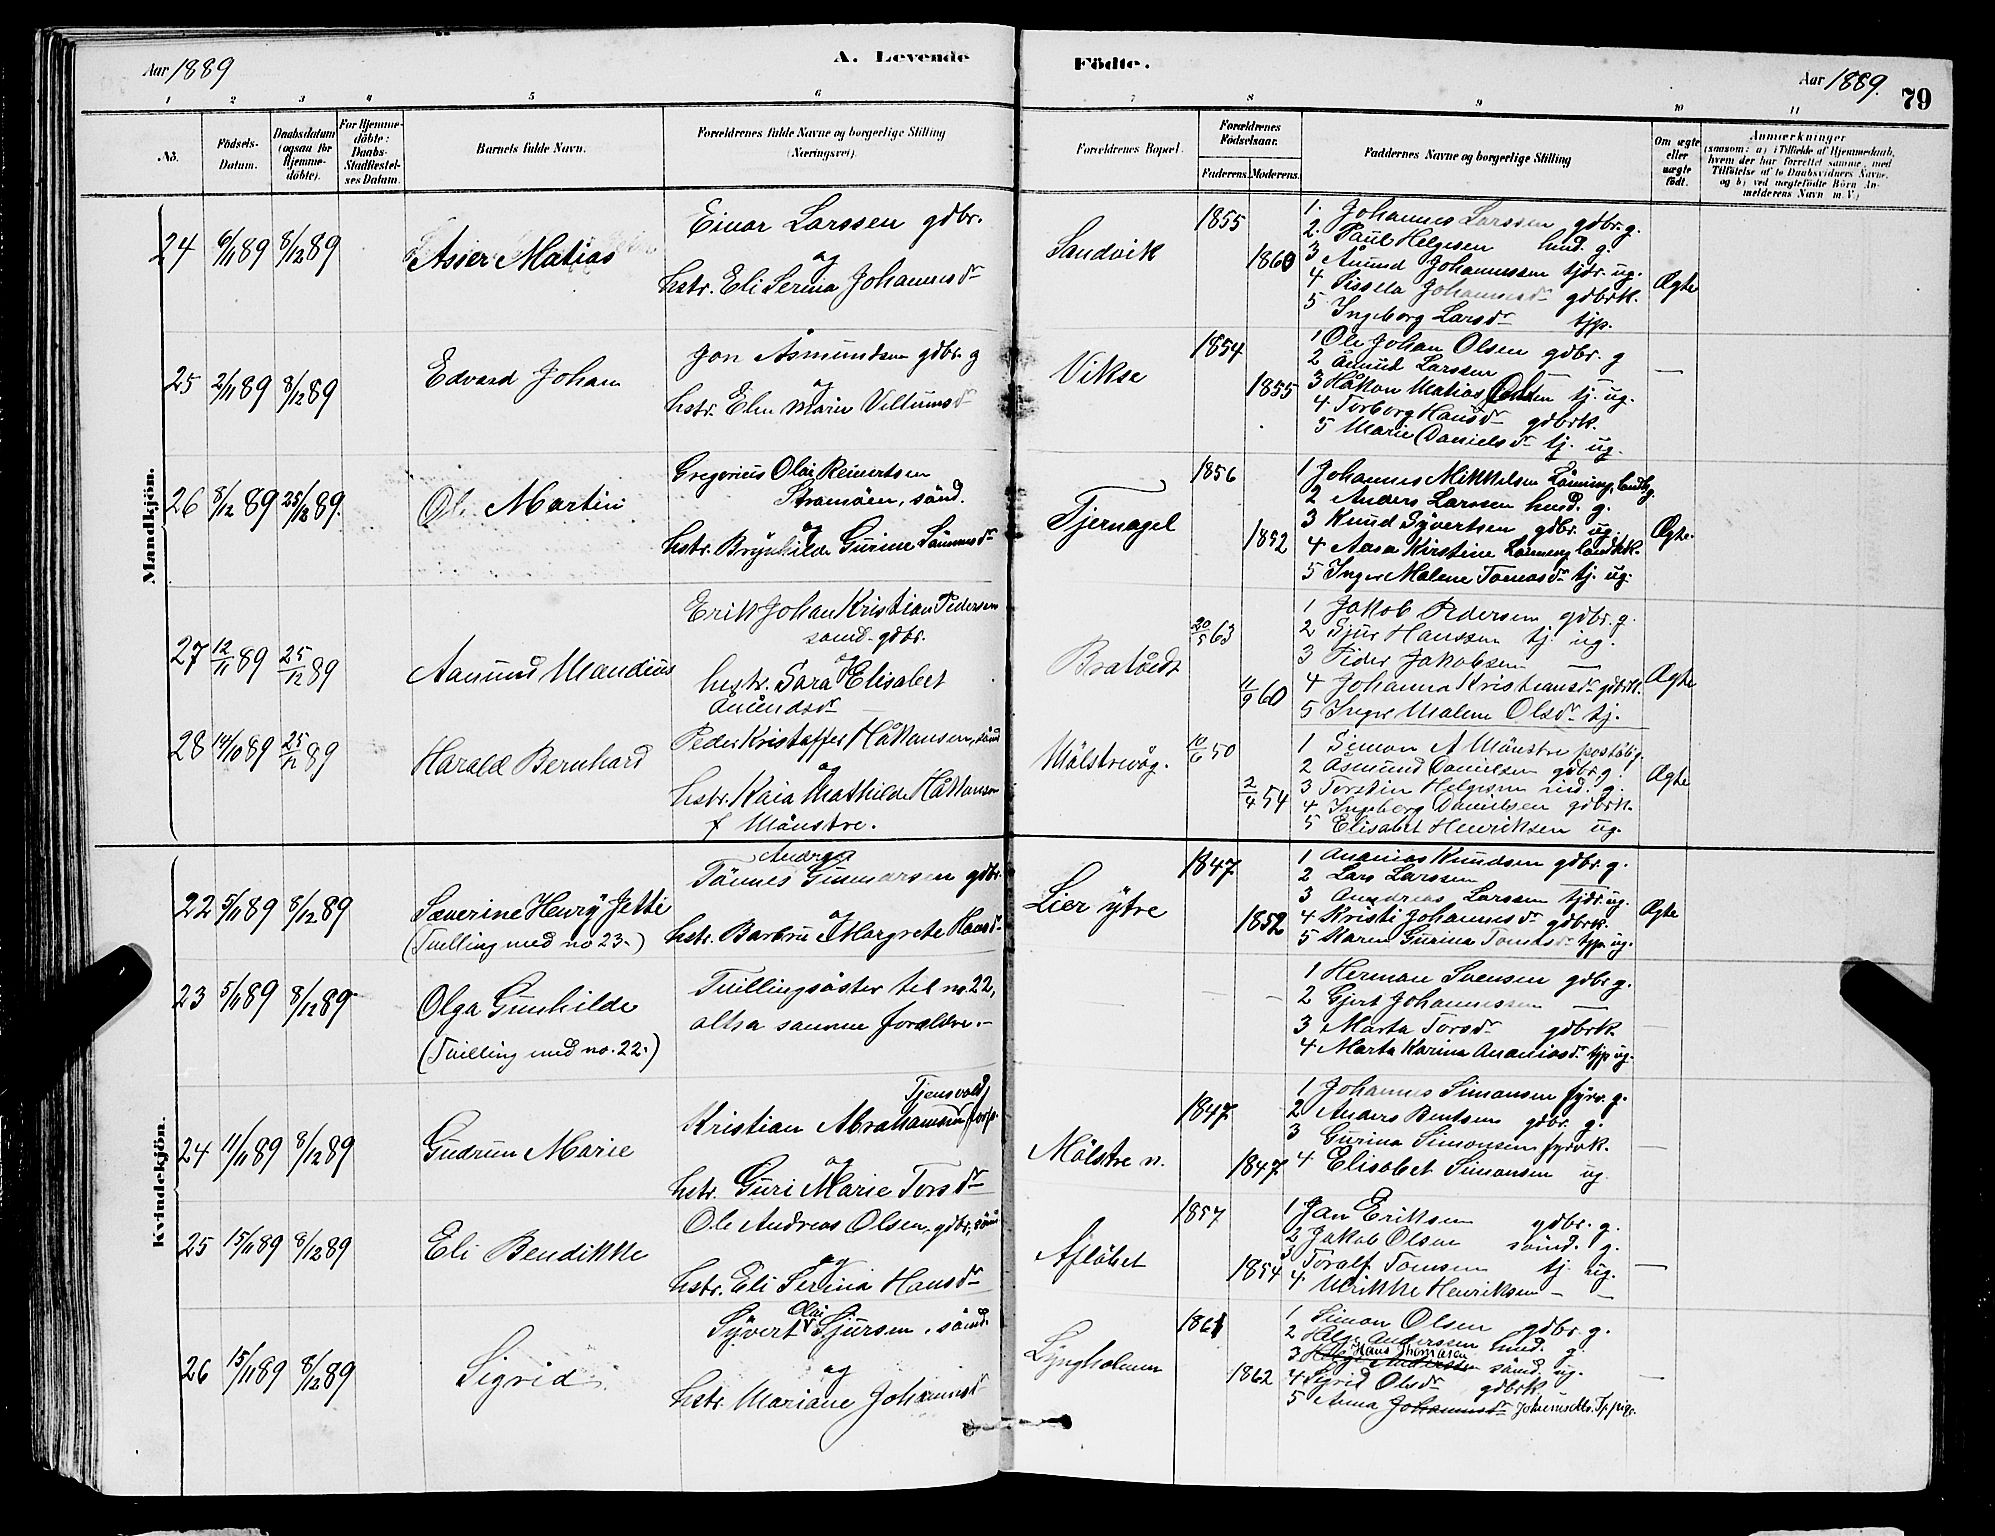 Aar 1889
A. Levende
Födte.
Aar 1889.
79
1 2 3 4 5 6 7 8 9 10 11
No.
Födsels-Datum.
Daabsdatum (ogsaa for Hjemme-döbte).
For Hjemme-döbte: Daabs-Stadfæstel-ses Datum.
Barnets fulde Navn.
Forældrenes fulde Navne og borgerlige Stilling (Næringsvei).
Forældrenes Bopæl.
Forældrenes Födselsaar.
Faderens. Moderens.
Faddernes Navne og borgerlige Stilling
Om ægte eller uægte födt.
Anmærkninger
(saasom: a) i Tilfælde af Hjemmedaab, hvem der har forrettet samme, med Tilföielse af to Daabsvidners Navne, og b) ved uægtefödte Börn An-melderens Navn m. V.)
Mandkjön.
24 6/11 89 8/12 89 Asser Matias
Einar Larssen gdbr.
og
hstr. Eli Serina Johannesdr
Sandvik 1855 1860
1. Johannes Larssen gdbr. g.
2. Paul Helgesen hmd. g.
3 Anund Johannessen tjdr. ug.
4 Sissela Johannesdr gdbrk.
5 Ingeborg Larsdr tjp.
Ægte
25 2/11 89 8/12 89 Edvard Johan
Jon Åsmundsen gdbr. g
og
hstr. Elen Marie Viltumsdr
Vikse 1854 1855
1 Ole Johan Olsen gdbr. g
2 Åmund Larssen —
3 Håkon Matias Olsen tj. ug.
4 Torborg Hansdr gdbrk.
5 Marie Danielsdr tj. ug.
—
26 8/12 89 25/12 89. Ole Martin
Gregorius Olai Reinertsen
Stramöen, sömd.
og
hstr. Brynhilde Gurine
Tjernagel 1856 1852
1 Johannes Mikkelsen Lönning, g.
2 Anders Larssen husd. g.
3 Knud Syvertsen gdbr. ug.
4 Aasa Kirstine Lönning
5 Inger Malene Tomasdr tj. ug.
Ægte.
27 12/11 89 25/12 89 Aamund Mandius
Erik Johan Kristian Pedersen
sömd. gdbr.
og
hustr. Sara Elisabet
Åmundsdr
Bratvedt 20/5 63 11/9 60
1 Jakob Pedersen gdbr. g.
2 Sjur Hanssen tj. ug.
3 Peder Jakobsen —
4 Johanna Kristiansdr gdbrk.
5 Inger Malene Olsdr tj.
Ægte
28 14/10 89 25/12 89 Harald Bernhard
Peder Kristoffer Håkonsen, sömd
og
hstr. Kaia Mathilde Håkonsen
f Mönstre.
Mölstrevåg. 10/6 50 2/4 54
1 Simon A Mönstre
2 Åsmund Danielsen gdbr. g.
3 Torstein Helgesen ind. g.
4 Ingeborg Danielsen gdbrk.
5 Elisabet Henriksen ug.
Ægte
Kvindekjön.
22 5/11 89 8/12 89 Severine Henry Jetti
(Tvilling med no 23.)
Andreas
Tönnes Gunnarsen gdbr.
og
hstr. Barbru Margrete Hansdr
Lier ytre 1847. 1852
1 Ananias Knudsen gdbr. g.
2 Lars Larssen —
3 Andreas Larssen tjdr. ug.
4 Kristi Johannesdr gdbrk.
5 Karen Gurina Tomasdr tjp. ug.
Ægte
23 5/11 89 8/12 89 Olga Gunhilde
(Tvilling med no. 22.)
Tvillingsöster til no. 22,
altsa samme forældre.
– – –
1 Herman Svensen gdbr. g.
2 Gjert Johannessen —
3 Marta Torsdr gdbrk.
4 Marta Karina Ananiasdr tjp ug.
—
24 11/11 89 8/12 89 Gudrun Marie
Tjensvold,
Kristian Abrahamsen
og
hstr. Guri Marie Torsdr
Mölstre n. 1847. 1847.
1 Johannes Simonsen fyrv. g.
2 Anders Bentsen gdbr. g.
3 Gurina Simonsen fyrvk.
4 Elisabet Simonsen ug
—
25 15/11 89 8/12 89 Eli Bendikke
Ole Andreas Olsen, gdbr., sömd
og
hstr. Eli Serina Hansdr
Aflöbet 1857 1854
1 Jan Eriksen gdbr. g.
2 Jakob Olsen sömd. g.
3 Toralf Tomsen tj. ug.
4 Ulrikke Henriksen – —
—
26 15/11 89 8/12 89 Sigrid
Olai
Syvert Sjursen, sömd.
og
hstr. Mariane Johannesdr
Lyngholmen 1861 1862
1 Simon Olsen gdbr. g.
2 Helge Anderssen husd. g.
3 Helge Anderssen Hans Thomasen sömd. ug.
4 Sigrid Olsdr gdbrk.
5 Anna Johannesdr Tj. pige.
—